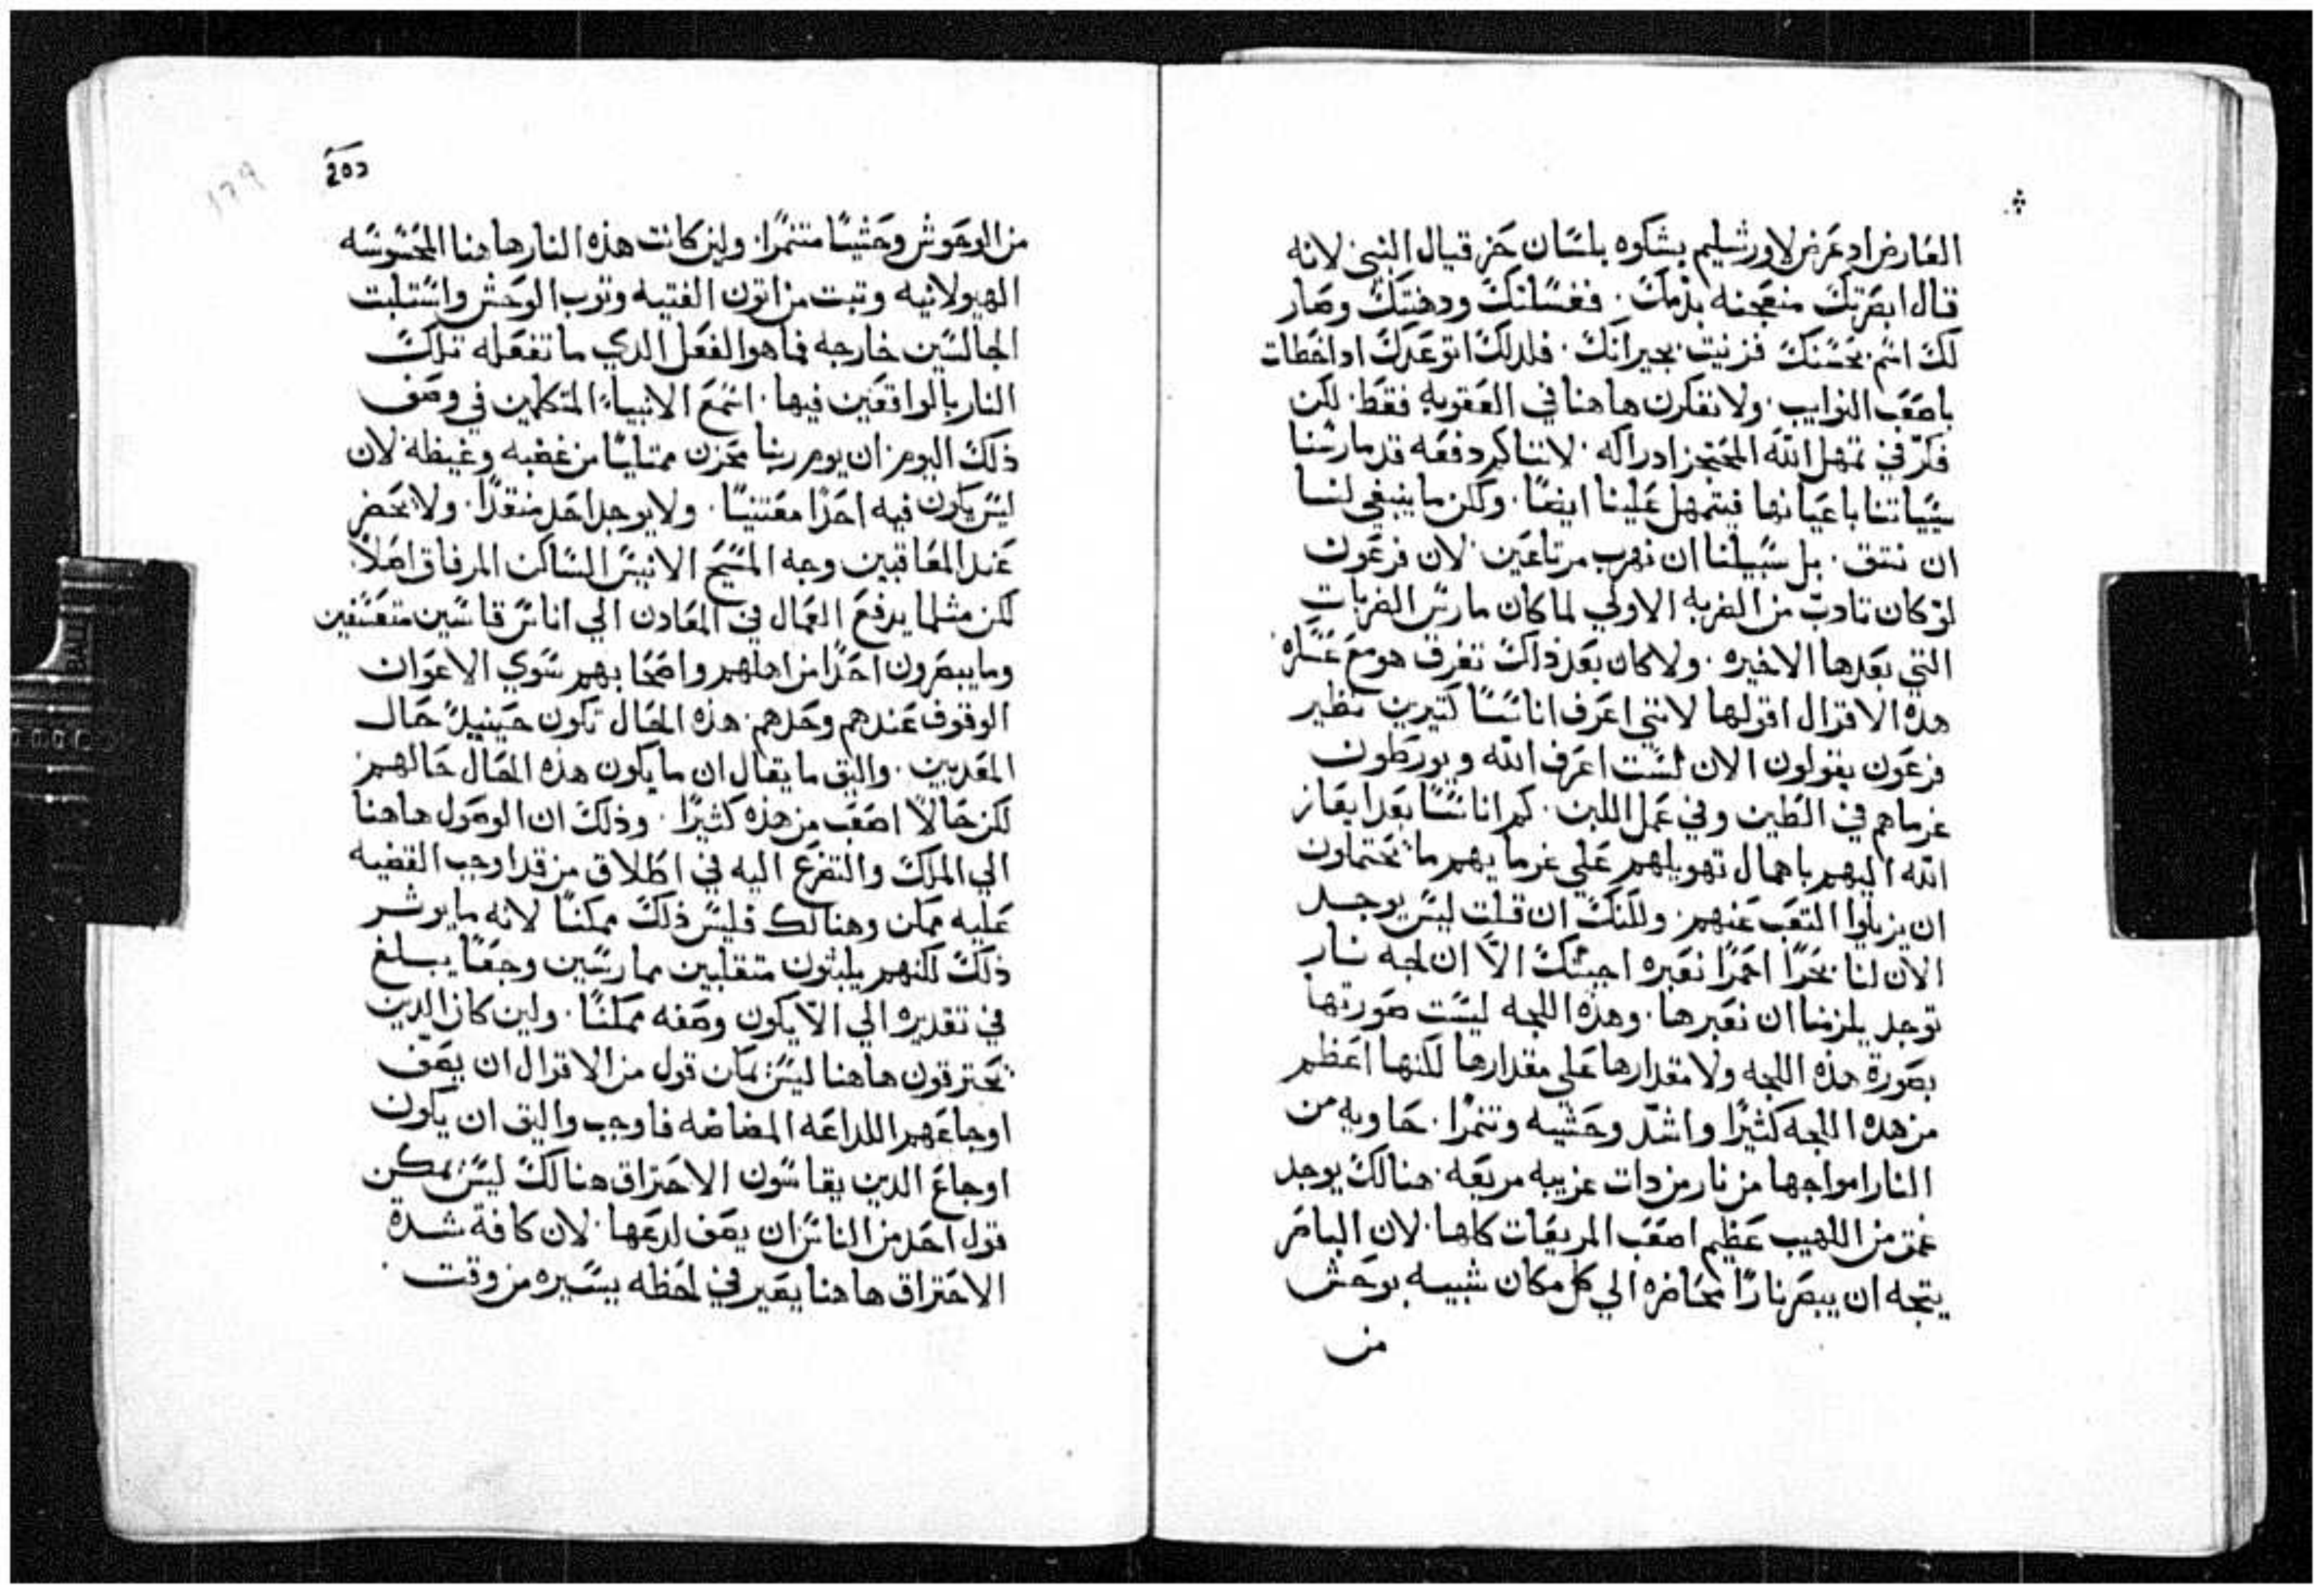 العارض اد عرض لاورشليم بشكوه بلسان حزقيال النبي لانه
قال ابصرتك منعجنه بدمك . فغسلتك ودهنتك وصار
لك اسم بحسنك فزنيت بجيرانك . فلدلك اتوعدك ادا خطات
باصعب النوايب . ولا تفكرن هاهنا في العقوبه فقط . لكن
فكر في تمهل الله المحتجز ادراكه . لاننا كم دفعه قد مارسنا
سيياتنا باعيانها فيتمهل علينا ايضا . ولكن ما ينبغي لنا
ان نتق . بل سبيلنا ان نهرب مرتاعين . لان فرعون
لو كان تادب من الضربه الاولي لما كان مارس الضربات
التي بعدها الاخيره . ولا كان بعد ذاك تغرق هو مع عسكره .
هده الاقوال اقولها لانني اعرف اناسا كتيرين نظير
فرعون يقولون الان لست اعرف الله ويورطون
غرماهم في الطين وفي عمل اللبن . كم اناسا بعد ايعاز
الله اليهم باهمال تهويلهم علي غرمايهم ما يحتملون
ان يزيلوا التعب عنهم . ولكنك ان قلت ليس يوجد
الان لنا بحرا احمرا نعبره اجبتك الا ان لجه نار
توجد يلزمنا ان نعبرها . وهذه اللجه ليست صورتها
بصورة هذه اللجه ولا مقدارها علي مقدارها لكنها اعظم
من هده اللجه كثيرا واشد وحشيه وتنمرا . حاويه من
النار امواجها من نار من دات غريبه مريعه . هنالك يوجد
عمق من اللهيب عظيم اصعب المريعات كلها . لان الباصر
يتجه ان يبصر نارا محاضره الي كل مكان شبيه بوحش
من
من الوحوش وحشيا متنمرا . ولين كانت هذه النار هاهنا المحسوسه
الهيولانيه وتبت من اتون الفتيه وتوب الوحش واستلبت
الجالسين خارجه فما هو الفعل الدي ما تفعله تلك
النار بالواقعين فيها . اسمع الانبياء المتكلمين في وصف
ذلك اليوم ان يوم ربنا محزن ممتليا من غضبه وغيظه لان
ليس يكون فيه احدا معتنيا . ولا يوجد احد منقدا . ولا يحضر
عند المعاقبين وجه المسيح الانيس الساكن المرفاق اصلا .
لكن مثلما يدفع العمال في المعادن الي اناس قاسين متعسفين
وما يبصرون احدا من اهلهم واصحابهم سوي الاعوان
الوقوف عندهم وحدهم . هذه الحال تكون حينيد حال
المعدبين . واليق ما يقال ان ما يكون هذه الحال حالهم
لكن حالا اصعب من هذه كثيرا . وذلك ان الوصول هاهنا
الي الملك والتضرع اليه في اطلاق من قد اوجب القضيه
عليه ممكن وهنالك فليس ذلك ممكنا لانه ما يوثر
ذلك لكنهم يلبثون متقلبين ممارسين وجعا يبلغ
في تقديره الي الا يكون وصفه ممكنا . ولين كان الدين
يحترقون هاهنا ليس يمكن قول من الاقوال ان يصف
اوجاعهم اللداعه المضاضه فاوجب واليق ان يكون
اوجاع الدين يقاسون الاحتراق هنالك ليس يمكن
قول احد من الناس ان يصف لدعها . لان كافة شدة
الاحتراق هاهنا يصير في لحظه يسيره من وقت .